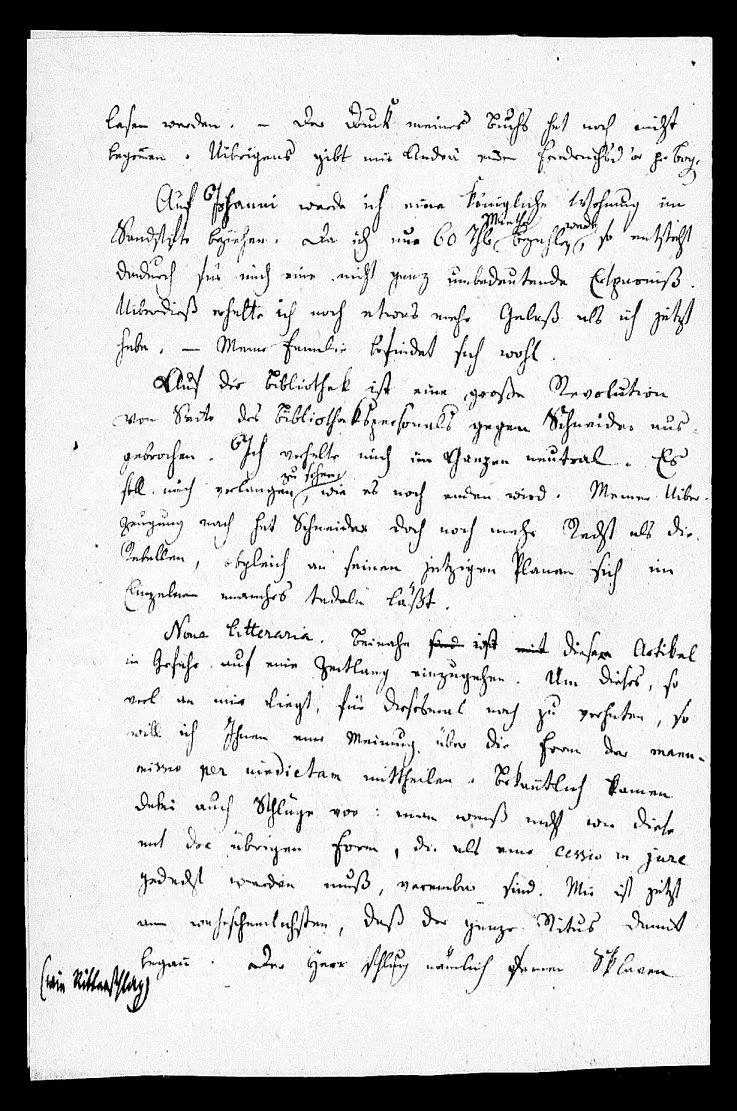 lesen werden. – Der Druck meines Buchs hat noch nicht
begonnen. Uibrigens gibt mir André einen Friedrichsd'or p. Bog.
Auf Johanni werde ich eine königliche Wohnung im
Sandstifte beziehen. Da ich nur 60 Thlr Miethe bezahlen werde, so entsteht
dadurch für mich eine nicht ganz unbedeutende Ersparniß.
Uiberdieß erhalte ich noch etwas mehr Gelaß als ich jetzt
habe. – Meine Familie befindet sich wohl.
Auf der Bibliothek ist eine große Revolution
von Seite des Bibliothekspersonals gegen Schneider aus-
gebrochen. Ich verhalte mich im Ganzen neutral. Es
soll mich verlangen zu sehen, wie es noch enden wird. Meiner Uiber-
zeugung nach hat Schneider doch noch mehr Recht als die
Rebellen, obgleich an seinen jetzigen Planen sich im
Einzelnen manches tadeln läßt.
Nova litteraria. Beinahe ist dieser Artikel
in Gefahr auf eine Zeitlang einzugehen. Um dieses, so
viel an mir liegt, für diesesmal noch zu verhüten, so
will ich Ihnen eine Meinung über die Form der manu-
missio per vindictam mittheilen. Bekanntlich kamen
dabei auch Schläge vor: man weiß nicht wie diese
mit der übrigen Form, die als eine cessio in jure
gedacht werden muß, vereinbar sind. Mir ist jetzt
am wahrscheinlichsten, daß der ganze Ritus damit
begann. Der Herr schlug nämlich seinen Sklaven
(wie Ritterschlag)